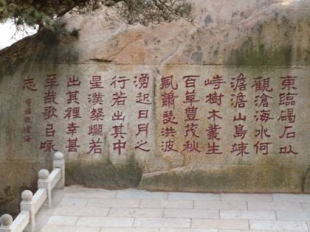 東臨碣石以
觀滄海水何
澹澹山島竦
峙樹木叢生
百草豐茂秋
風蕭瑟洪波
湧起日月之
行若出其中
星漢粲爛若
出其裡幸甚
至哉歌㠯咏
志